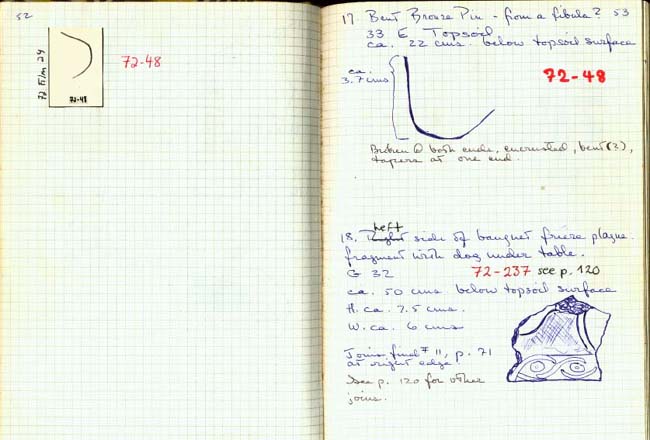 52
72 Film 24
72-48
72-48
53
17 Bent Bronze Pin - from a fibula?
33 E Topsoil
ca. 22 cms. below topsoil surface
ca.
3.7 cms
72-48
Broken @ both ends, encrusted, bent(?),
tapers at one end.
Left
18. Right side of banquet frieze plaque
fragment with dog under table.
G 32
72-237 see p. 120
ca. 50 cms below topsoil surface
H. ca. 7.5 cms.
W. ca. 6 cms
Joins find # 11, p. 71
at right edge.
See p. 120 for other
joins.